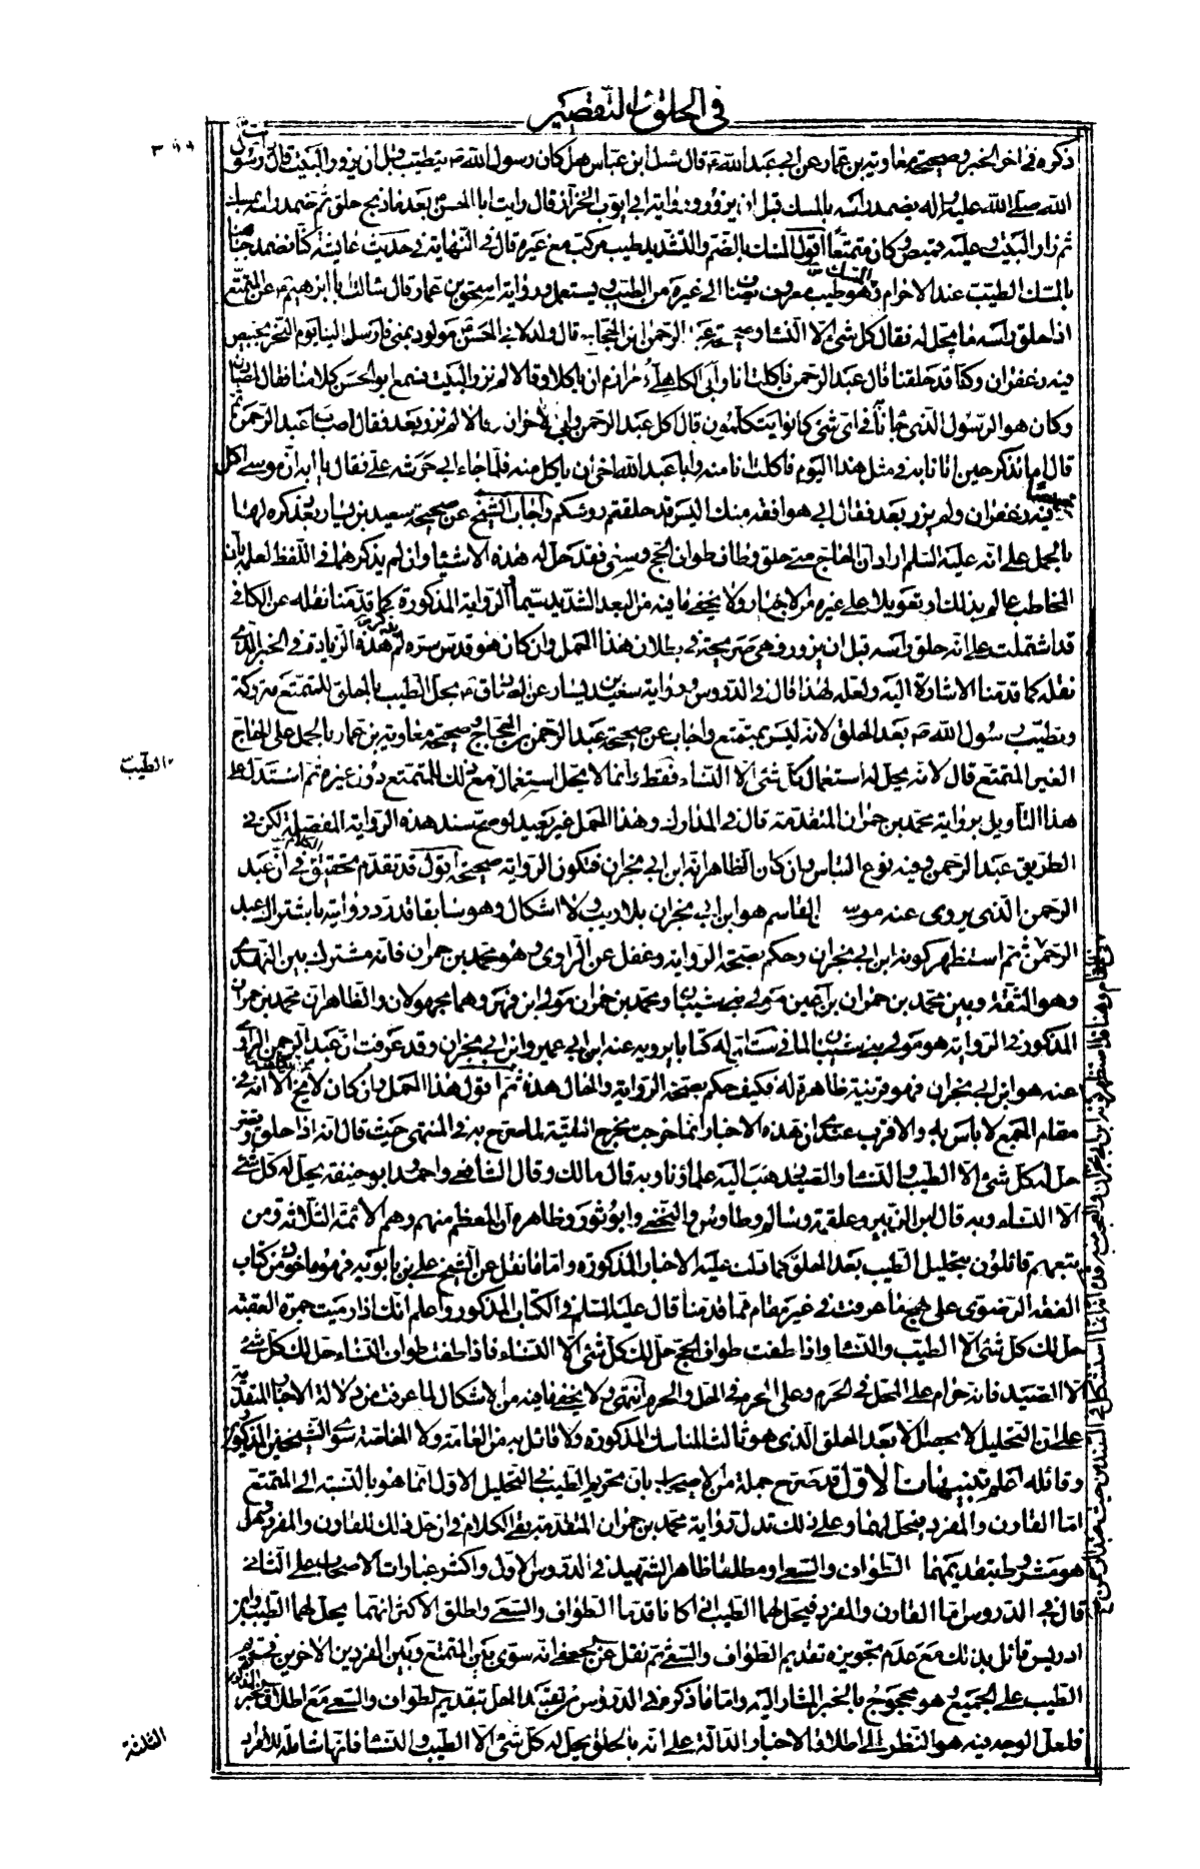 في الحلق والتقصير
٣٩٩
ذكره في اخر الخبر وصحيحة معاوية بن عمار عن ابي عبد الله ع قال سئل ابن عباس هل كان رسول الله ص يتطيب قبل ان يزور البيت قال رايت رسول
الله صلى الله عليه واله يضمد راسه بالمسك قبل ان يزور ورواية ابي ايوب الخزاز قال رايت ابا الحسن بعد ما ذبح حلق ثم ضمد راسه بسك
ثم زار البيت وعليه قميص وكان متمتعا اقول السك بالضم والتشديد طيب مركب مع غيره قال في النهاية في حديث عايشة كنا نضمد جباهنا
بالسك الطيب عند الاحرام وهو طيب معروف يضاف الى غيره من الطيب ويستعمل ورواية اسحق بن عمار قال سالت ابا ابرهيم ع عن المتمتع
اذا حلق راسه ما يحل له فقال كل شئ الا النساء وصحيحة عبد الرحمن بن الحجاج قال ولد لابي الحسن مولود بمنى فارسل الينا يوم النحر بخبيص
فيه زعفران وكنا قد حلقنا قال عبد الرحمن فاكلت انا وابى الكاهلى ومرازم ان ياكلا وقالا لم نزر البيت فسمع ابو الحسن كلامنا فقال لمصادف
وكان هو الرسول الذي جاءنا في اي شئ كانوا يتكلمون قال اكل عبد الرحمن وابى الاخران وقالا لم نزر بعد فقال اصاب عبد الرحمن ثم
قال اما تذكر حين اتانا به في مثل هذا اليوم فاكلت انا منه وابى عبد الله اخى ان ياكل منه فلما جاء ابي حرشه علي فقال يا ابه ان موسى اكل
خبيصا فيه زعفران ولم يزر بعد فقال ابي هو افقه منك اليس قد حلقتم رؤسكم واجاب الشيخ عن صحيحة سعيد بن يسار بعد ذكره لها
بالحمل على انه عليه السلم اراد ان الحاج متى حلق وطاف طواف الحج وسعى فقد حل له هذه الاشياء وان لم يذكرهما في اللفظ لعلمه بان
المخاطب عالم بذلك او تعويلا على غيره من الاخبار ولا يخفى ما فيه من البعد الشديد سيما والرواية المذكورة كما قدمنا نقله عن الكافي
قد اشتملت على انه حلق راسه قبل ان يزور فهي صريحة في بطلان هذا الحمل وان كان هو قدس سره لم يذكر هذه الزيادة في الخبر الذي
نقله كما قدمنا الاشارة اليه ولعله لهذا قال في الدروس ورواية سعيد بن يسار عن الصادق ع بحل الطيب بالحلق للمتمتع متروكة
وتطيب رسول الله ص بعد الحلق لانه ليس بمتمتع واجاب عن صحيحة عبد الرحمن بن الحجاج وصحيحة معاوية بن عمار بالحمل على الحاج
الغير المتمتع قال لانه يحل له استعمال كل شئ الا النساء فقط وانما لا يحل استعمال الطيب مع ذلك للمتمتع دون غيره ثم استدل على
هذا التاويل برواية محمد بن حمران المتقدمة قال في المدارك وهذا الحمل غير بعيد لو صح سند هذه الرواية المفصلة لكن في
الطريق عبد الرحمن وفيه نوع التباس وان كان الظاهر انه ابن ابي نجران فتكون الرواية صحيحة اقول قد تقدم تحقيق الكلام في ان عبد
الرحمن الذي يروى عنه موسى بن القاسم هو ابن ابي نجران بلا ريب ولا اشكال وهو سابقا قد رد روايته باشتراك عبد
الرحمن ثم استظهر كونه ابن ابي نجران وحكم بصحة الرواية وغفل عن الراوي وهو محمد بن حمران فانه مشترك بين النهدي
وهو الثقة وبين محمد بن حمران بن اعين مولى بني شيبان ومحمد بن حمران مولى ابن فهر وهما مجهولان والظاهر ان محمد بن حمران
المذكور في الرواية هو مولى بني شيبان لما في ست ان له كتابا يرويه عنه ابن ابي عمير وابن ابي نجران وقد عرفت ان عبد الرحمن الراوي
عنه هو ابن ابي نجران فهو قرينة ظاهرة له فكيف حكم بصحة الرواية والحال هذه ثم اقول هذا الحمل وان كان لا يخ الا انه في
مقام الجمع لا باس به والاقرب عندي ان هذه الاخبار انما خرجت مخرج التقية لما صرح به في المنتهى حيث قال انه اذا حلق وقصر
حل له كل شئ الا الطيب والنساء والصيد ذهب اليه علماؤنا وبه قال مالك وقال الشافعي واحمد وابو حنيفة يحل له كل شئ
الا النساء وبه قال ابن الزبير وعلقمة وسالم وطاوس والنخعي وابو ثور وظاهره ان المعظم منهم وهم الائمة الثلاثة ومن
تبعهم قائلون بتحليل الطيب بعد الحلق كما دلت عليه الاخبار المذكورة واما ما نقل عن الشيخ علي بن بابويه فهو ماخوذ من كتاب
الفقه الرضوي على نهج ما عرفت في غير مقام مما قدمنا قال عليه السلم في الكتاب المذكور واعلم انك اذا رميت جمرة العقبة
حل لك كل شئ الا الطيب والنساء واذا طفت طواف الحج حل لك كل شئ الا النساء فاذا طفت طواف النساء حل لك كل شئ
الا الصيد فانه حرام على المحل في الحرم وعلى المحرم في الحل والحرم انتهى ولا يخفى ما فيه من الاشكال لما عرفت من دلالة الاخبار المتقدمة
على ان التحليل لا يحصل الا بعد الحلق الذي هو ثالث المناسك المذكورة ولا قائل به من العامة ولا الخاصة سوى الشيخين المذكورين
وقائله اعلم تنبيهات الاول قد صرح جملة من الاصحاب بان تحريم الطيب في التحليل الاول انما هو بالنسبة الى المتمتع
اما القارن والمفرد فيحل لهما وعلى ذلك تدل رواية محمد بن حمران المتقدمة بقي الكلام في ان حل ذلك للقارن والمفرد هل
هو مشروط بتقديمهما الطواف والسعي او مطلقا ظاهر الشهيد في الدروس الاول واكثر عبارات الاصحاب على الثاني
قال في الدروس اما القارن والمفرد فيحل لهما الطيب اذا كانا قدما الطواف والسعي واطلق الاكثر انهما يحل لهما الطيب وابن
ادريس قائل بذلك مع عدم تجويزه تقديم الطواف والسعي ثم نقل عن الجعفي انه سوى بين المتمتع وبين الفردين الاخرين في تحريم
الطيب على الجميع وهو محجوج بالخبر المشار اليه واما ما ذكره في الدروس من تقييد الحل بتقديم الطواف والسعي مع اطلاق الخبر المذكور
فلعل الوجه فيه هو النظر الى اطلاق الاخبار الدالة على انه بالحلق يحل له كل شئ الا الطيب والنساء فانها شاملة للافراد
الطيب
الثلثة